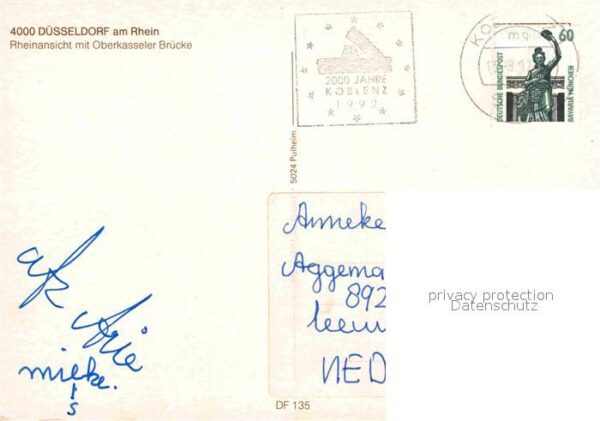 4000 DÜSSELDORF am Rhein
Rheinansicht mit Oberkasseler Brücke
2000 JAHRE
KOBLENZ
1992
60
DEUTSCHE BUNDESPOST
BAVARIA MÜNCHEN
5024 Pulheim
Anneke
Aggema
892
leeuw
NED
privacy protection
Datenschutz
afz
Arie
mieke.
DF 135